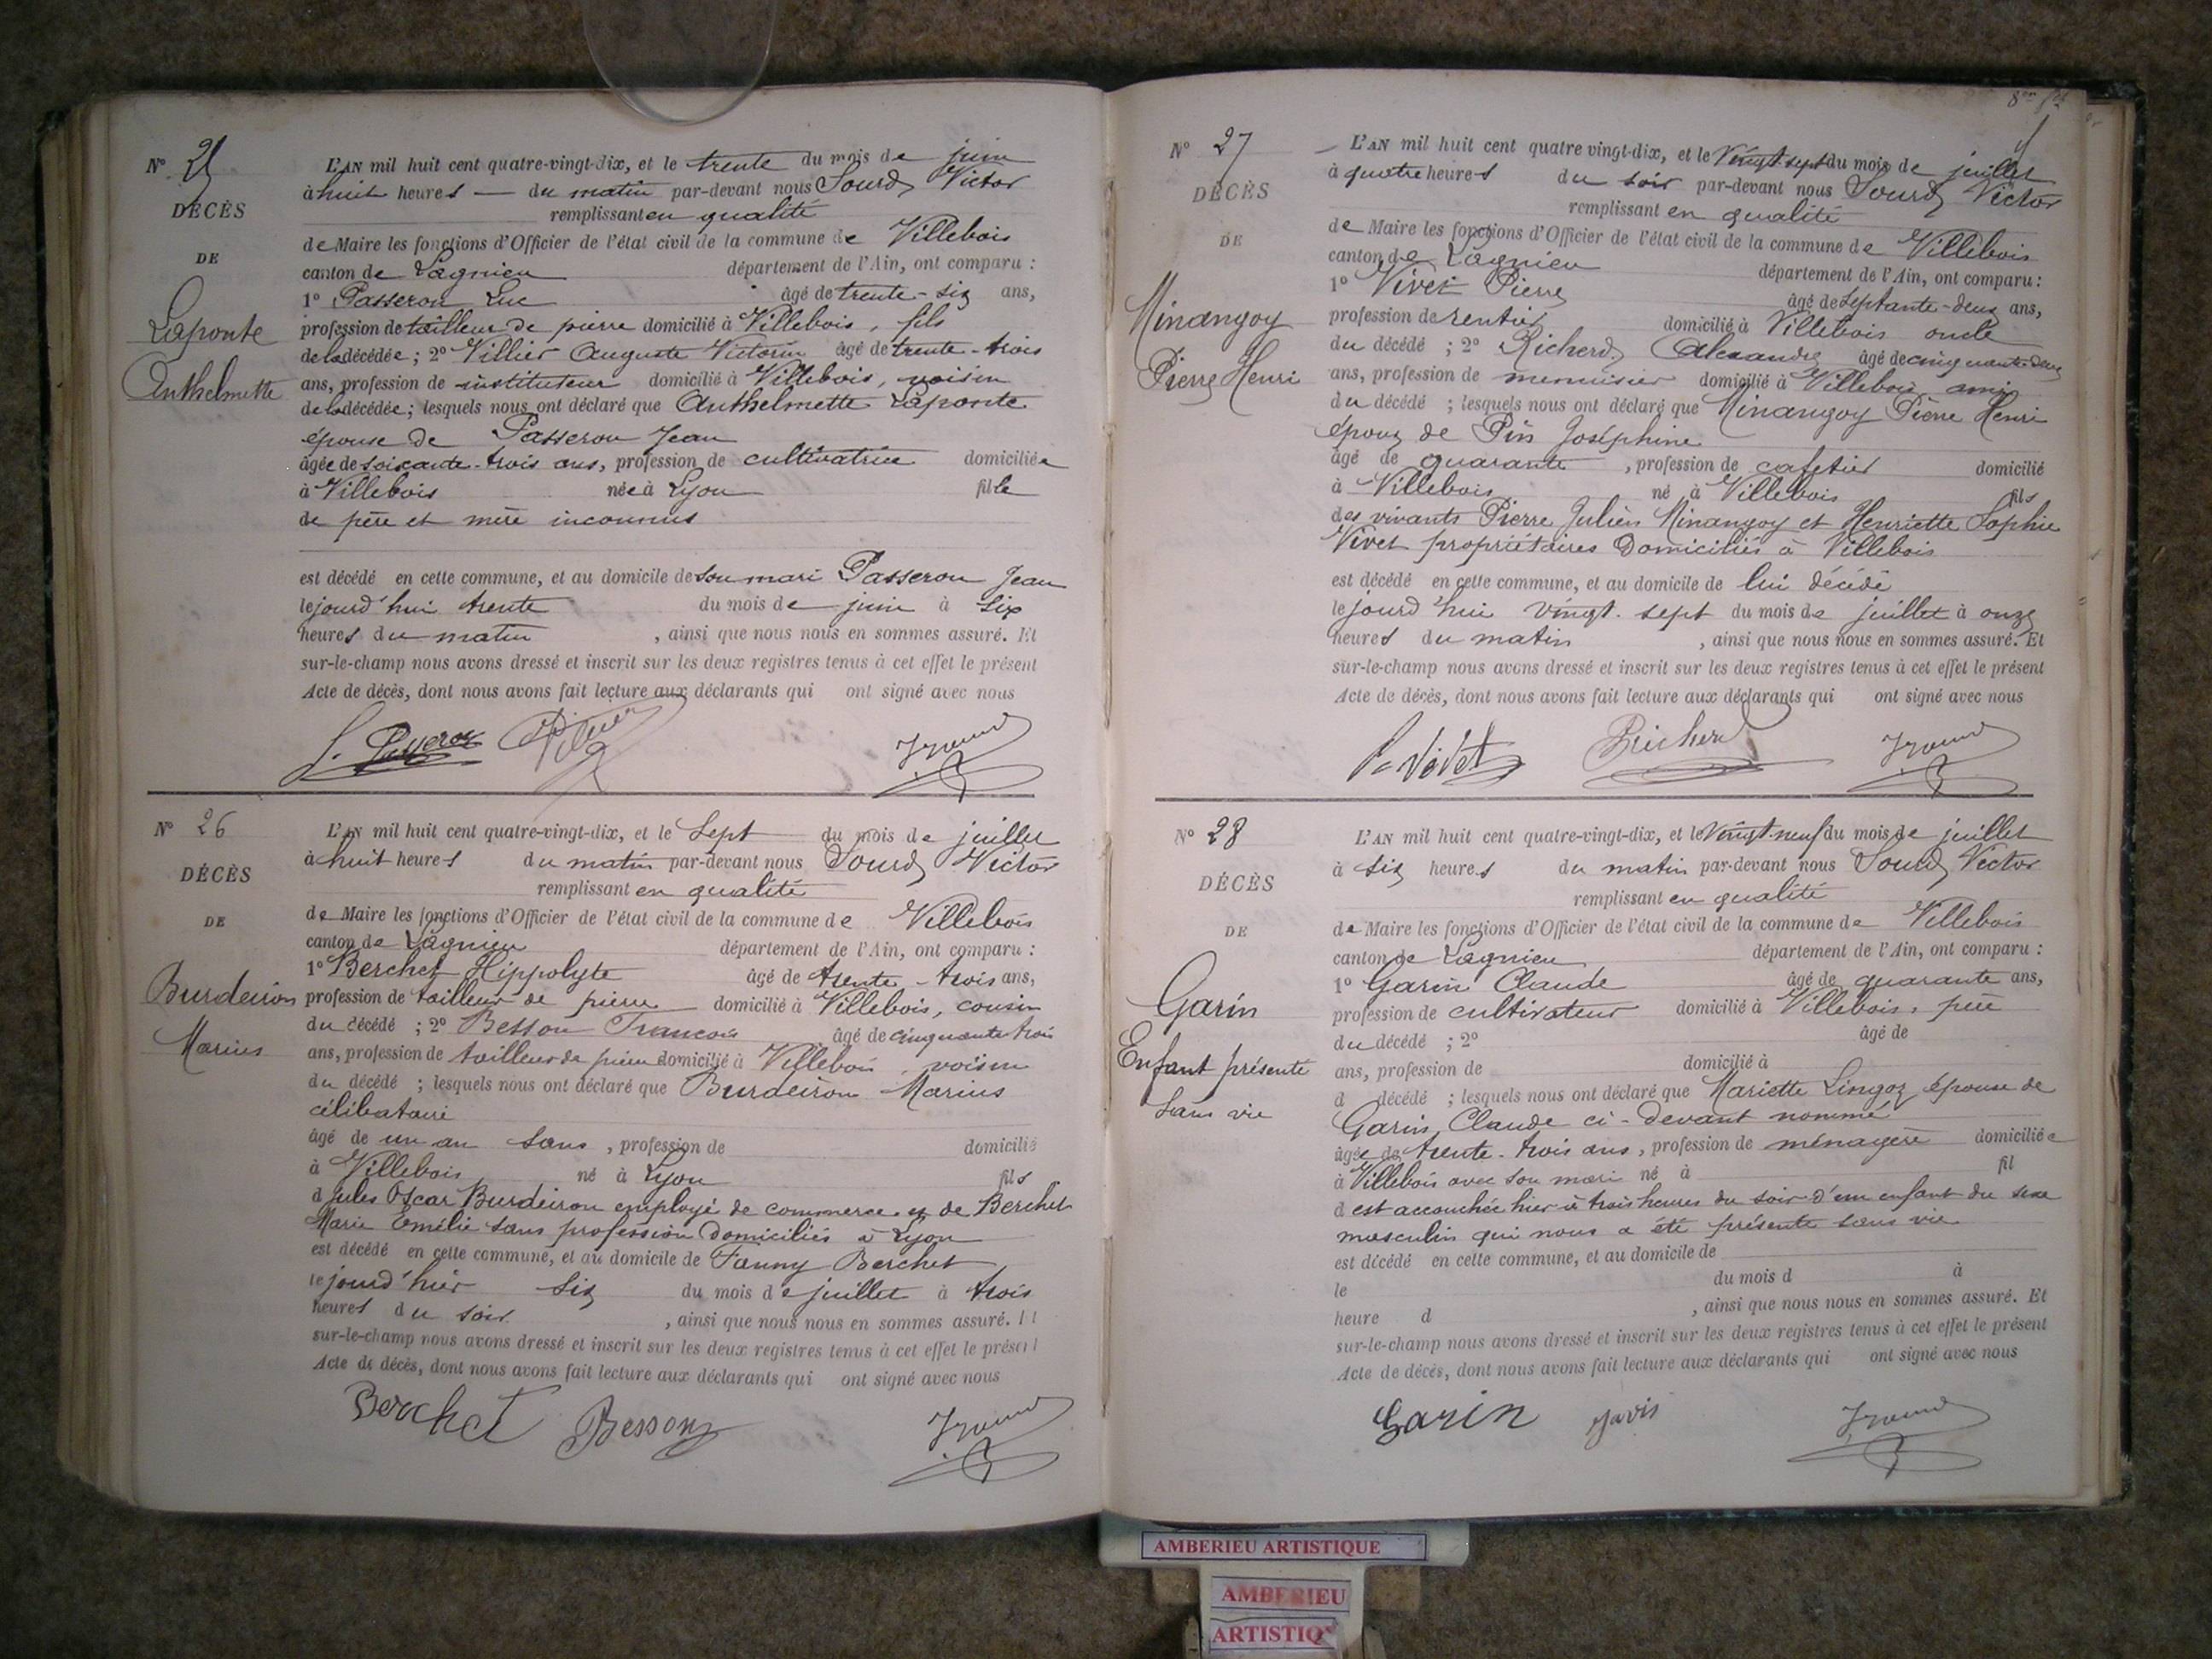 N° 25
DÉCÈS
DE
Laponte
Anthelmette
L'AN mil huit cent quatre-vingt-dix, et le trente du mois de juin
à huit heures du matin par-devant nous Sourd Victor
remplissant en qualité
de Maire les fonctions d'Officier de l'état civil de la commune de Villebois
canton de Lagnieu département de l'Ain, ont comparu :
1° Passeron Luc âgé de trente-six ans,
profession de tailleur de pierre domicilié à Villebois, fils
de la décédée ; 2° Villier Auguste Victorin âgé de trente-trois
ans, profession de instituteur domicilié à Villebois, voisin
de la décédée ; lesquels nous ont déclaré que Anthelmette Laponte
épouse de Passeron Jean
âgée de soixante-trois ans, profession de cultivatrice domiciliée
à Villebois née à Lyon fille
de père et mère inconnus
est décédé en cette commune, et au domicile de son mari Passeron Jean
le jourd'hui trente du mois de juin à six
heures du matin, ainsi que nous nous en sommes assuré. Et
sur-le-champ nous avons dressé et inscrit sur les deux registres tenus à cet effet le présent
Acte de décès, dont nous avons fait lecture aux déclarants qui ont signé avec nous
L. Passeron
N° 26
DÉCÈS
DE
Burdeiron
Marius
L'AN mil huit cent quatre-vingt-dix, et le sept du mois de juillet
à huit heures du matin par-devant nous Sourd Victor
remplissant en qualité
de Maire les fonctions d'Officier de l'état civil de la commune de Villebois
canton de Lagnieu département de l'Ain, ont comparu :
1° Berchet Hippolyte âgé de trente-trois ans,
profession de tailleur de pierre domicilié à Villebois, cousin
du décédé ; 2° Besson François âgé de cinquante trois
ans, profession de tailleur de pierre domicilié à Villebois, voisin
du décédé ; lesquels nous ont déclaré que Burdeiron Marius
célibataire
âgé de un an sans, profession de domicilié
à Villebois né à Lyon fils
d Jules Oscar Burdeiron employé de commerce et de Berchet
Marie Emélie sans profession domiciliés à Lyon
est décédé en cette commune, et au domicile de Fanny Berchet
le jourd'hier six du mois de juillet à trois
heures du soir, ainsi que nous nous en sommes assuré. Et
sur-le-champ nous avons dressé et inscrit sur les deux registres tenus à cet effet le présent
Acte de décès, dont nous avons fait lecture aux déclarants qui ont signé avec nous
Berchet Besson
N° 27
DÉCÈS
DE
Minangoy
Pierre Henri
L'AN mil huit cent quatre vingt-dix, et le vingt-sept du mois de juillet
à quatre heures du soir par-devant nous Sourd Victor
remplissant en qualité
de Maire les fonctions d'Officier de l'état civil de la commune de Villebois
canton de Lagnieu département de l'Ain, ont comparu :
1° Vivet Pierre âgé de septante-deux ans,
profession de rentier domicilié à Villebois oncle
du décédé ; 2° Richerd Alexandre âgé de cinquante-deux
ans, profession de menuisier domicilié à Villebois ami
du décédé ; lesquels nous ont déclaré que Minangoy Pierre Henri
époux de Pin Joséphine
âgé de quarante, profession de cafetier domicilié
à Villebois né à Villebois fils
des vivants Pierre Julien Minangoy et Henriette Sophie
Vivet propriétaires domiciliés à Villebois
est décédé en cette commune, et au domicile de lui décédé
le jourd'hui vingt-sept du mois de juillet à onze
heures du matin, ainsi que nous nous en sommes assuré. Et
sur-le-champ nous avons dressé et inscrit sur les deux registres tenus à cet effet le présent
Acte de décès, dont nous avons fait lecture aux déclarants qui ont signé avec nous
P. Vivet Richerd
N° 28
DÉCÈS
DE
Garin
Enfant présenté
sans vie
L'AN mil huit cent quatre-vingt-dix, et le vingt-neuf du mois de juillet
à six heures du matin par-devant nous Sourd Victor
remplissant en qualité
de Maire les fonctions d'Officier de l'état civil de la commune de Villebois
canton de Lagnieu département de l'Ain, ont comparu :
1° Garin Claude âgé de quarante ans,
profession de cultivateur domicilié à Villebois, père
du décédé ; 2° âgé de
ans, profession de domicilié à
d décédé ; lesquels nous ont déclaré que Mariette Lingoz épouse de
Garin Claude ci-devant nommé
âgée de trente-trois ans, profession de ménagère domiciliée
à Villebois avec son mari né à fil
d est accouchée hier à trois heures du soir d'un enfant du sexe
masculin qui nous a été présenté sans vie
est décédé en cette commune, et au domicile de
le du mois d à
heure d, ainsi que nous nous en sommes assuré. Et
sur-le-champ nous avons dressé et inscrit sur les deux registres tenus à cet effet le présent
Acte de décès, dont nous avons fait lecture aux déclarants qui ont signé avec nous
Garin
AMBERIEU ARTISTIQUE
AMBERIEU
ARTISTIQ